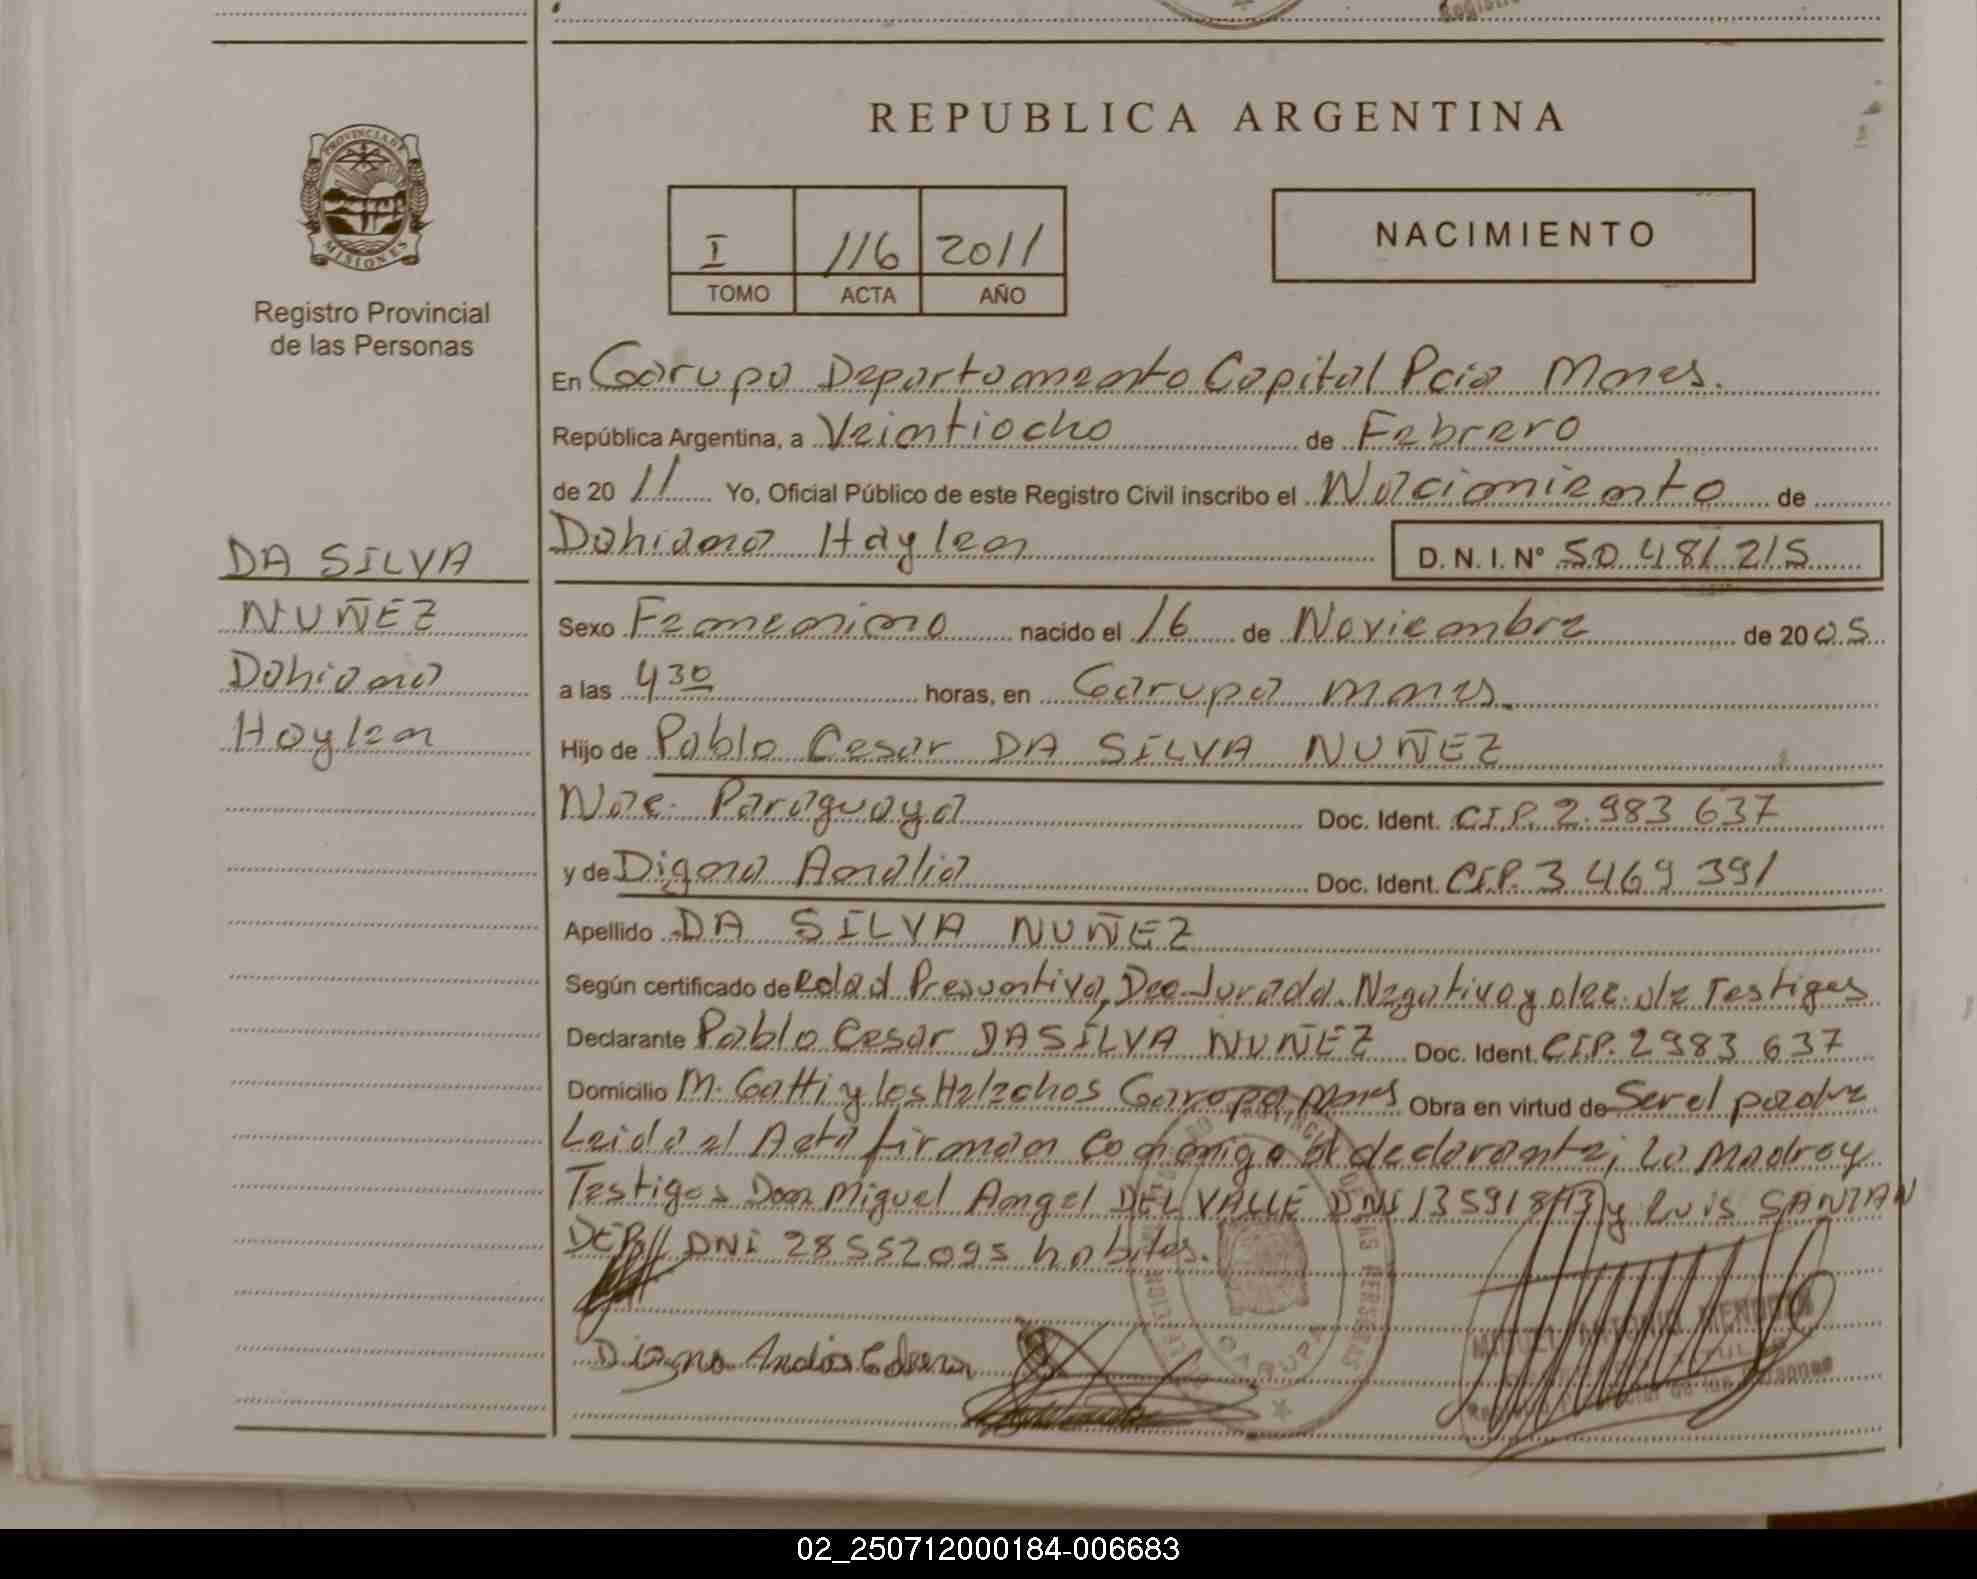 REPUBLICA ARGENTINA
PROVINCIA DE
MISIONES
Registro Provincial
de las Personas
I 116 2011
TOMO ACTA AÑO
NACIMIENTO
En Garupa Departamento Capital Pcia Mnes.
República Argentina, a Veintiocho de Febrero
de 2011 Yo, Oficial Público de este Registro Civil inscribo el Nacimiento de
Dahiana Haylen D. N. I. Nº 50.481.215
DA SILVA
NUÑEZ
Dahiana
Haylen
Sexo Femenino nacido el 16 de Noviembre de 2005
a las 4 30 horas, en Garupa Mnes.
Hijo de Pablo Cesar DA SILVA NUÑEZ
Nac. Paraguaya Doc. Ident. CIP. 2.983 637
y de Digna Analia Doc. Ident. CIP. 3 469 391
Apellido DA SILVA NUÑEZ
Según certificado de edad Presuntiva, Dec. Jurada. Negativa y dec. de Testigos
Declarante Pablo Cesar DA SILVA NUÑEZ Doc. Ident. CIP. 2983 637
Domicilio M. Gatti y los Helechos Garupa Mnes Obra en virtud de Ser el padre
Leida el Acta firman conmigo el declarante; la Madre y
Testigos Don Miguel Angel DEL VALLE DNI 13591813 y Luis SANTAN
DER// DNI 28552095 habiles.
GARUPA
02_250712000184-006683